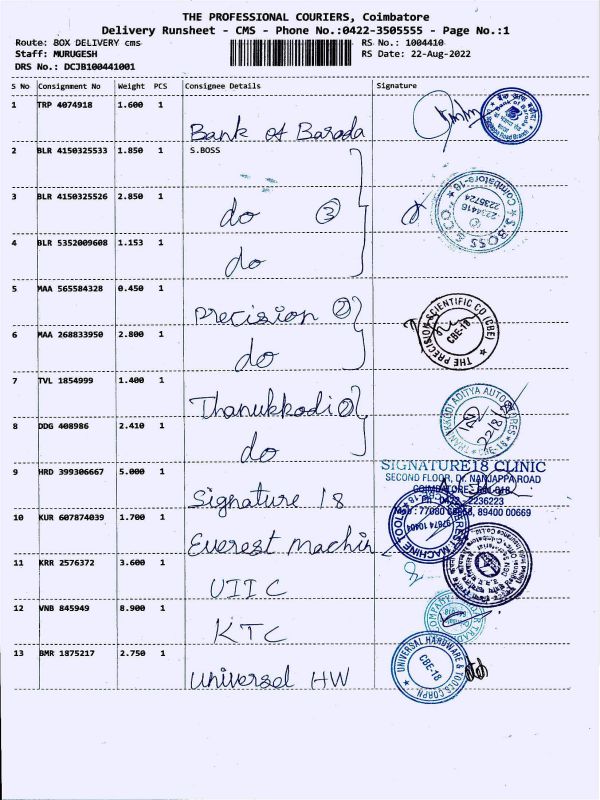 THE PROFESSIONAL COURIERS, Coimbatore
Delivery Runsheet - CMS - Phone No.:0422-3505555 - Page No.:1
Route: BOX DELIVERY cms RS No.: 1004410
Staff: MURUGESH RS Date: 22-Aug-2022
DRS No.: DCJB100441001
S No Consignment No Weight PCS Consignee Details Signature
1 TRP 4074918 1.600 1
Bank of Baroda
2 BLR 4150325533 1.850 1 S.BOSS
3 BLR 4150325526 2.850 1
do 3
S. BOSS & CO
Coimbatore-18
2234416
2235724
4 BLR 5352009608 1.153 1
do
5 MAA 565584328 0.450 1
Precision 2
THE PRECISION SCIENTIFIC CO (CBE)
CBE-18
6 MAA 268833950 2.800 1
do
7 TVL 1854999 1.400 1
Thanukkodi 2
22/8/22
8 DDG 408986 2.410 1
do
SIGNATURE18 CLINIC
SECOND FLOOR, Dr. NANJAPPA ROAD
COIMBATORE - 641 018
9 HRD 399306667 5.000 1
Signature 18
10 KUR 607874039 1.700 1
Everest Machin
11 KRR 2576372 3.600 1
UIIC
12 VNB 845949 8.900 1
KTC
13 BMR 1875217 2.750 1
Universel HW
UNIVERSAL HARDWARE & TOOLS CORPN.
CBE-18